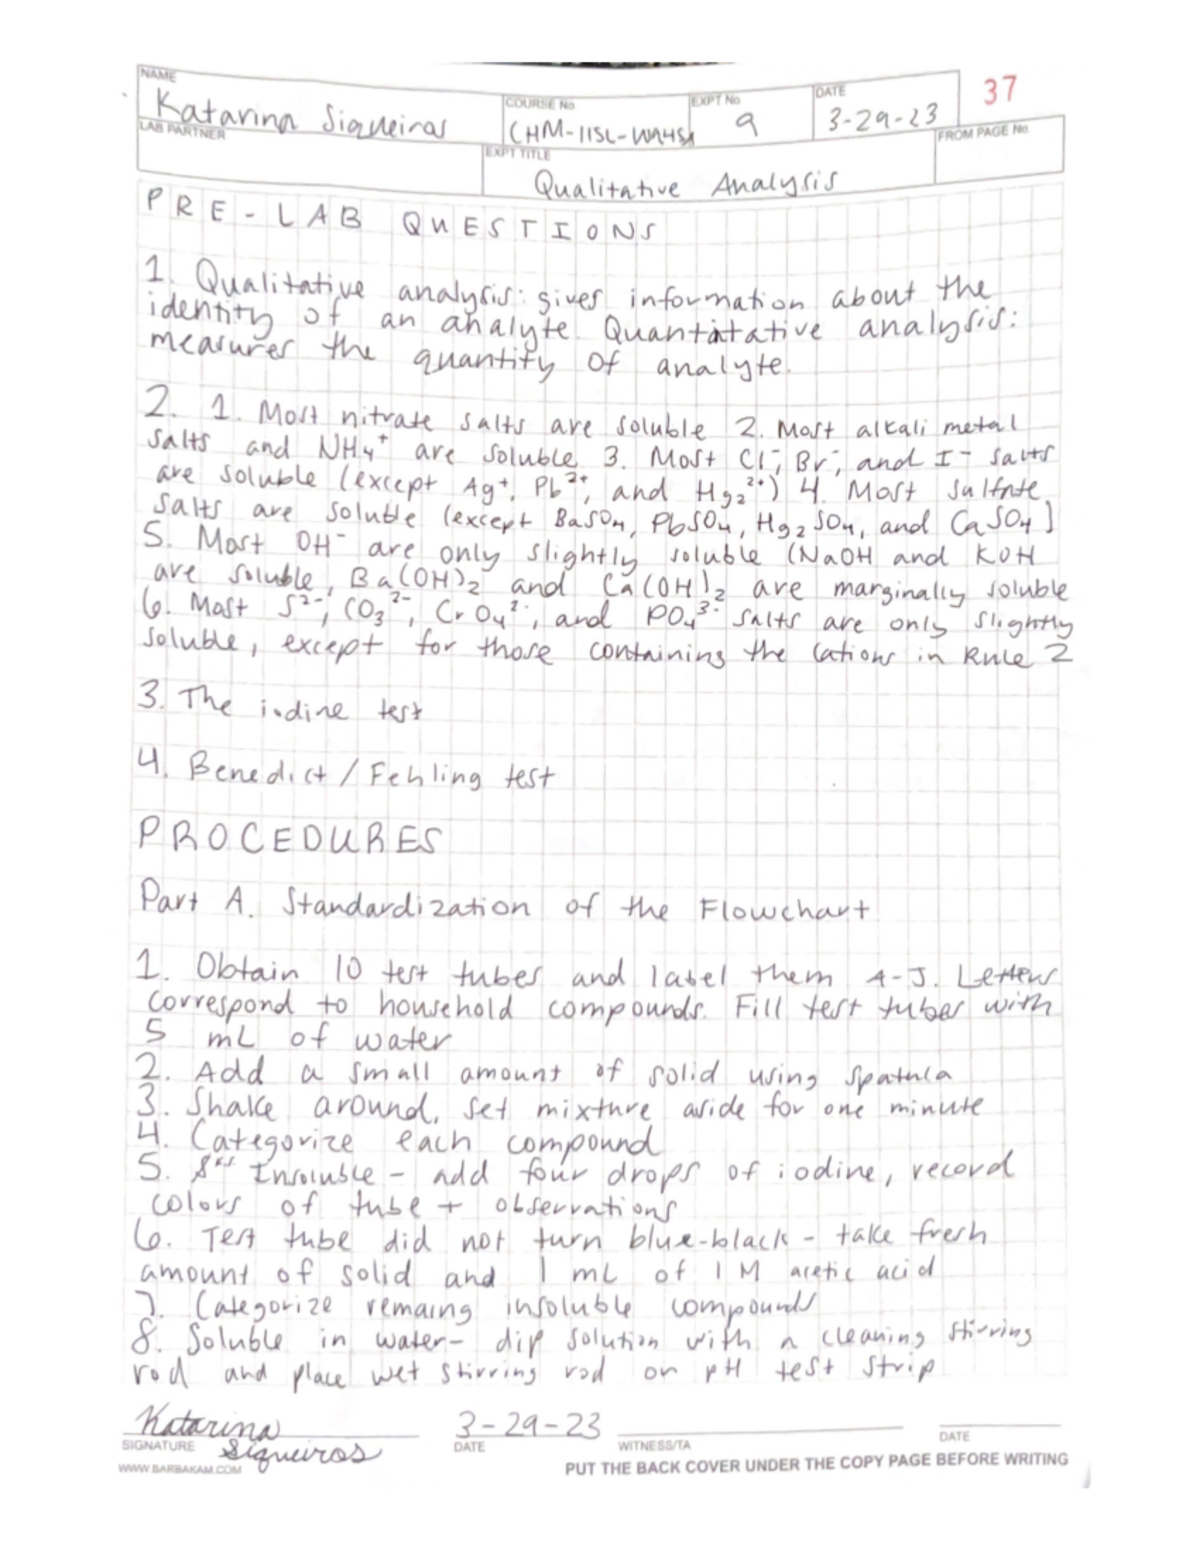 NAME
Katarina Siqueiros
COURSE No
CHM-115L-WA4SA
EXPT No
9
DATE
3-29-23
37
LAB PARTNER
EXPT TITLE
Qualitative Analysis
FROM PAGE No.
PRE-LAB QUESTIONS
1. Qualitative analysis: gives information about the
identity of an analyte. Quantitative analysis:
measures the quantity of analyte.
2. 1. Most nitrate salts are soluble 2. Most alkali metal
salts and NH4+ are soluble 3. Most Cl-, Br-, and I- salts
are soluble (except Ag+, Pb2+, and Hg2 2+) 4. Most sulfate
salts are soluble (except BaSO4, PbSO4, Hg2SO4, and CaSO4)
5. Most OH- are only slightly soluble (NaOH and KOH
are soluble, Ba(OH)2 and Ca(OH)2 are marginally soluble
6. Most S2-, CO3 2-, CrO4 2-, and PO4 3- salts are only slightly
soluble, except for those containing the cations in Rule 2
3. The iodine test
4. Benedict/Fehling test
PROCEDURES
Part A. Standardization of the Flowchart
1. Obtain 10 test tubes and label them A-J. Letters
correspond to household compounds. Fill test tubes with
5 mL of water
2. Add a small amount of solid using spatula
3. Shake around, set mixture aside for one minute
4. Categorize each compound
5. Insoluble - add four drops of iodine, record
colors of tube + observations
6. Test tube did not turn blue-black - take fresh
amount of solid and 1 mL of 1 M acetic acid
7. Categorize remaing insoluble compounds
8. Soluble in water- dip solution with a cleaning stirring
rod and place wet stirring rod on pH test strip
Katarina
Siqueiros
SIGNATURE
3-29-23
DATE
WITNESS/TA
DATE
WWW.BARBAKAM.COM
PUT THE BACK COVER UNDER THE COPY PAGE BEFORE WRITING